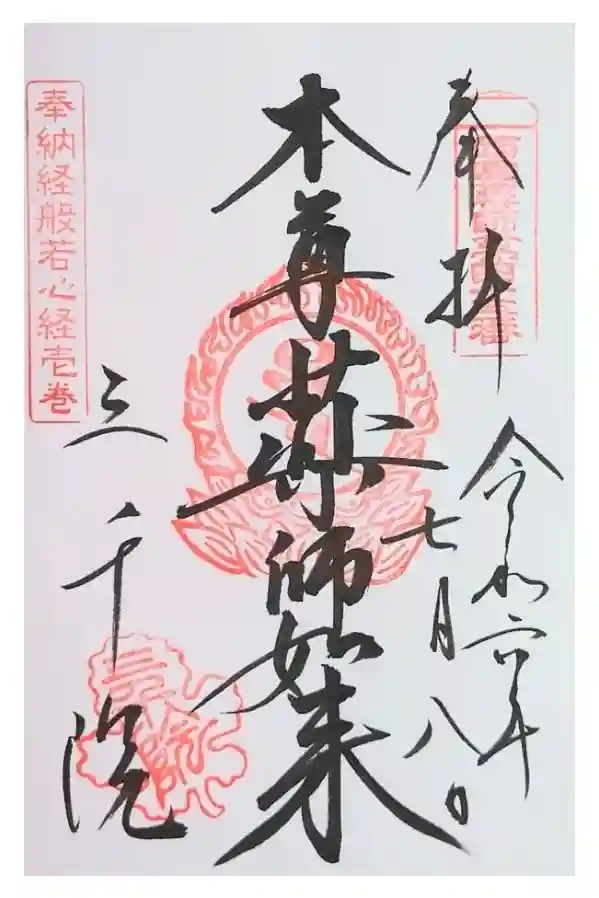 奉拝
令和六年
七月八日
本尊薬師如来
三千院
奉納経般若心経壱巻